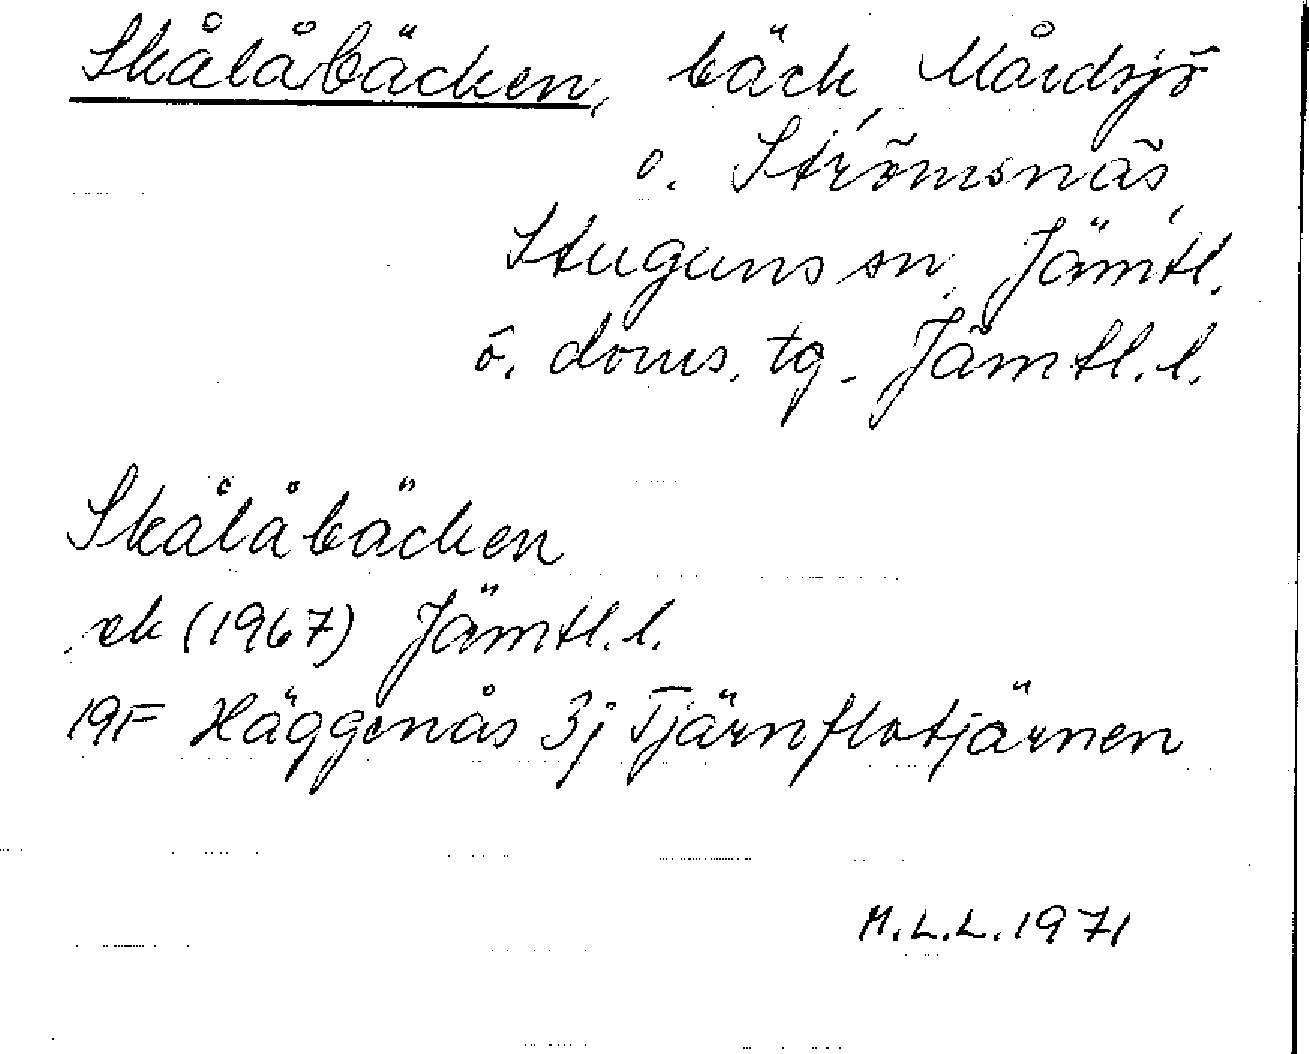 Skålåbäcken, bäck, Mårdsjö
o. Strömsnäs,
Stuguns sn, Jämtl.
ö. doms. tg. Jämtl. l.
Skålåbäcken
ek (1967) Jämtl. l.
19F Häggenås 3j Tjärnflotjärnen
M.L.L. 1971